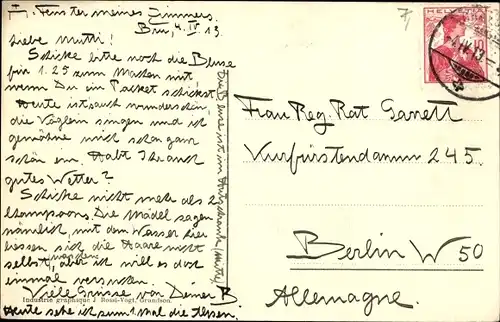 Fenster meines Zimmers.
4. IV 13.
Liebe Mutti!
Schicke bitte noch die Bluse
für 1.25 zum Machen mit
wenn Du ein Packet schickst.
Heute ist auch wunderschön,
die Vöglein singen und ich
gewöhne mich schon ganz
schön ein. Habt Ihr auch
gutes Wetter?
Schicke nicht mehr als 2
Champoons. Die Mädel sagen
nämlich, mit dem Wasser hier
liessen sich die Haare nicht
selbst waschen, aber ich will es doch
einmal versuchen.
Viele Grüsse von Deiner B
Heute sehe ich zum 1. Mal die Alpen.
Die Bluse ist im
Industrie graphique J. Rossi-Vogt, Grandson.
HELVETIA
10
Frau Reg. Rat Garett
Kurfürstendamm 245
Berlin W 50
Allemagne.